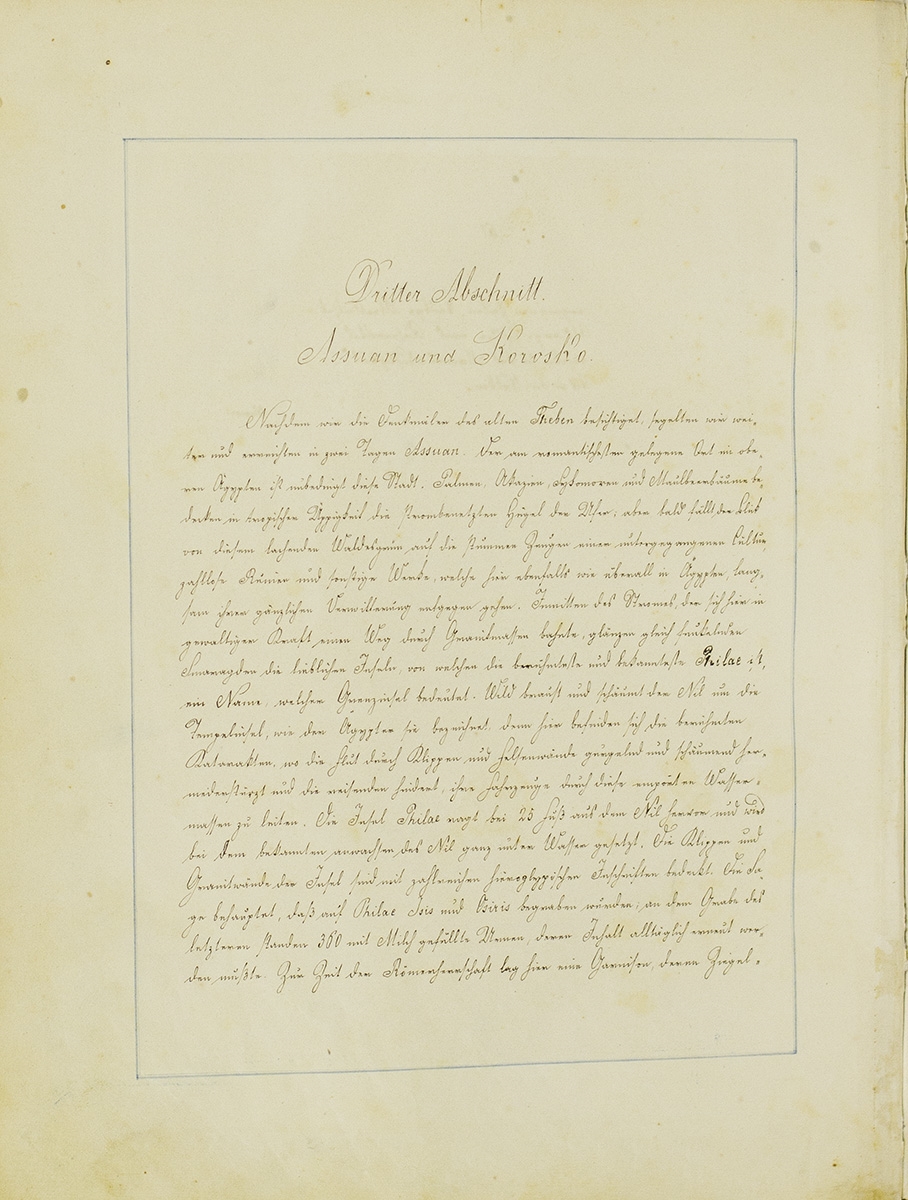 Dritter Abschnitt.
Assuan und Korosko.
Nachdem wir die Denkmäler des alten Theben besichtiget, segelten wir wei-
ter und erreichten in zwei Tagen Assuan. Der am romantischesten gelegene Ort im obe-
ren Ägypten ist unbedingt diese Stadt. Palmen, Akazien, Sykomoren und Maulbeerbäume be-
decken in tropischer Üppigkeit die strombenetzten Hügel der Ufer; aber bald fällt der Blick
von diesem lachenden Waldesgrün auf die stummen Zeugen einer untergegangenen Cultur,
zahllose Ruinen und sonstige Werke, welche hier ebenfalls wie überall in Ägypten, lang-
sam ihrer gänzlichen Verwitterung entgegen gehen. Inmitten des Stromes, der sich hier in
gewaltiger Kraft einen Weg durch Granitmassen bahnte, glänzen gleich funkelnden
Smaragden die lieblichen Inseln, von welchen die berühmteste und bekannteste Philae ist,
ein Name, welcher Grenzinsel bedeutet. Wild braust und schäumt der Nil um die
Tempelinsel, wie der Ägypter sie bezeichnet, denn hier befinden sich die berühmten
Katarakten, wo die Flut durch Klippen und Felsenwände gurgelnd und schäumend her-
niederstürzt und die reisenden hindert, ihre Fahrzeuge durch diese empörten Wasser-
massen zu leiten. Die Insel Philae ragt bei 25 Fuß aus dem Nil hervor und wird
bei dem bekannten anwachsen des Nil ganz unter Wasser gesetzt. Die Klippen und
Granitwände der Insel sind mit zahlreichen hieroglyphischen Inschriften bedeckt. Die Sa-
ge behauptet, daß auf Philae Isis und Osiris begraben wurden; an dem Grabe des
letzteren standen 360 mit Milch gefüllte Urnen, deren Inhalt alltäglich erneut wer-
den mußte. Zur Zeit der Römerherrschaft lag hier eine Garnison, deren Ziegel-